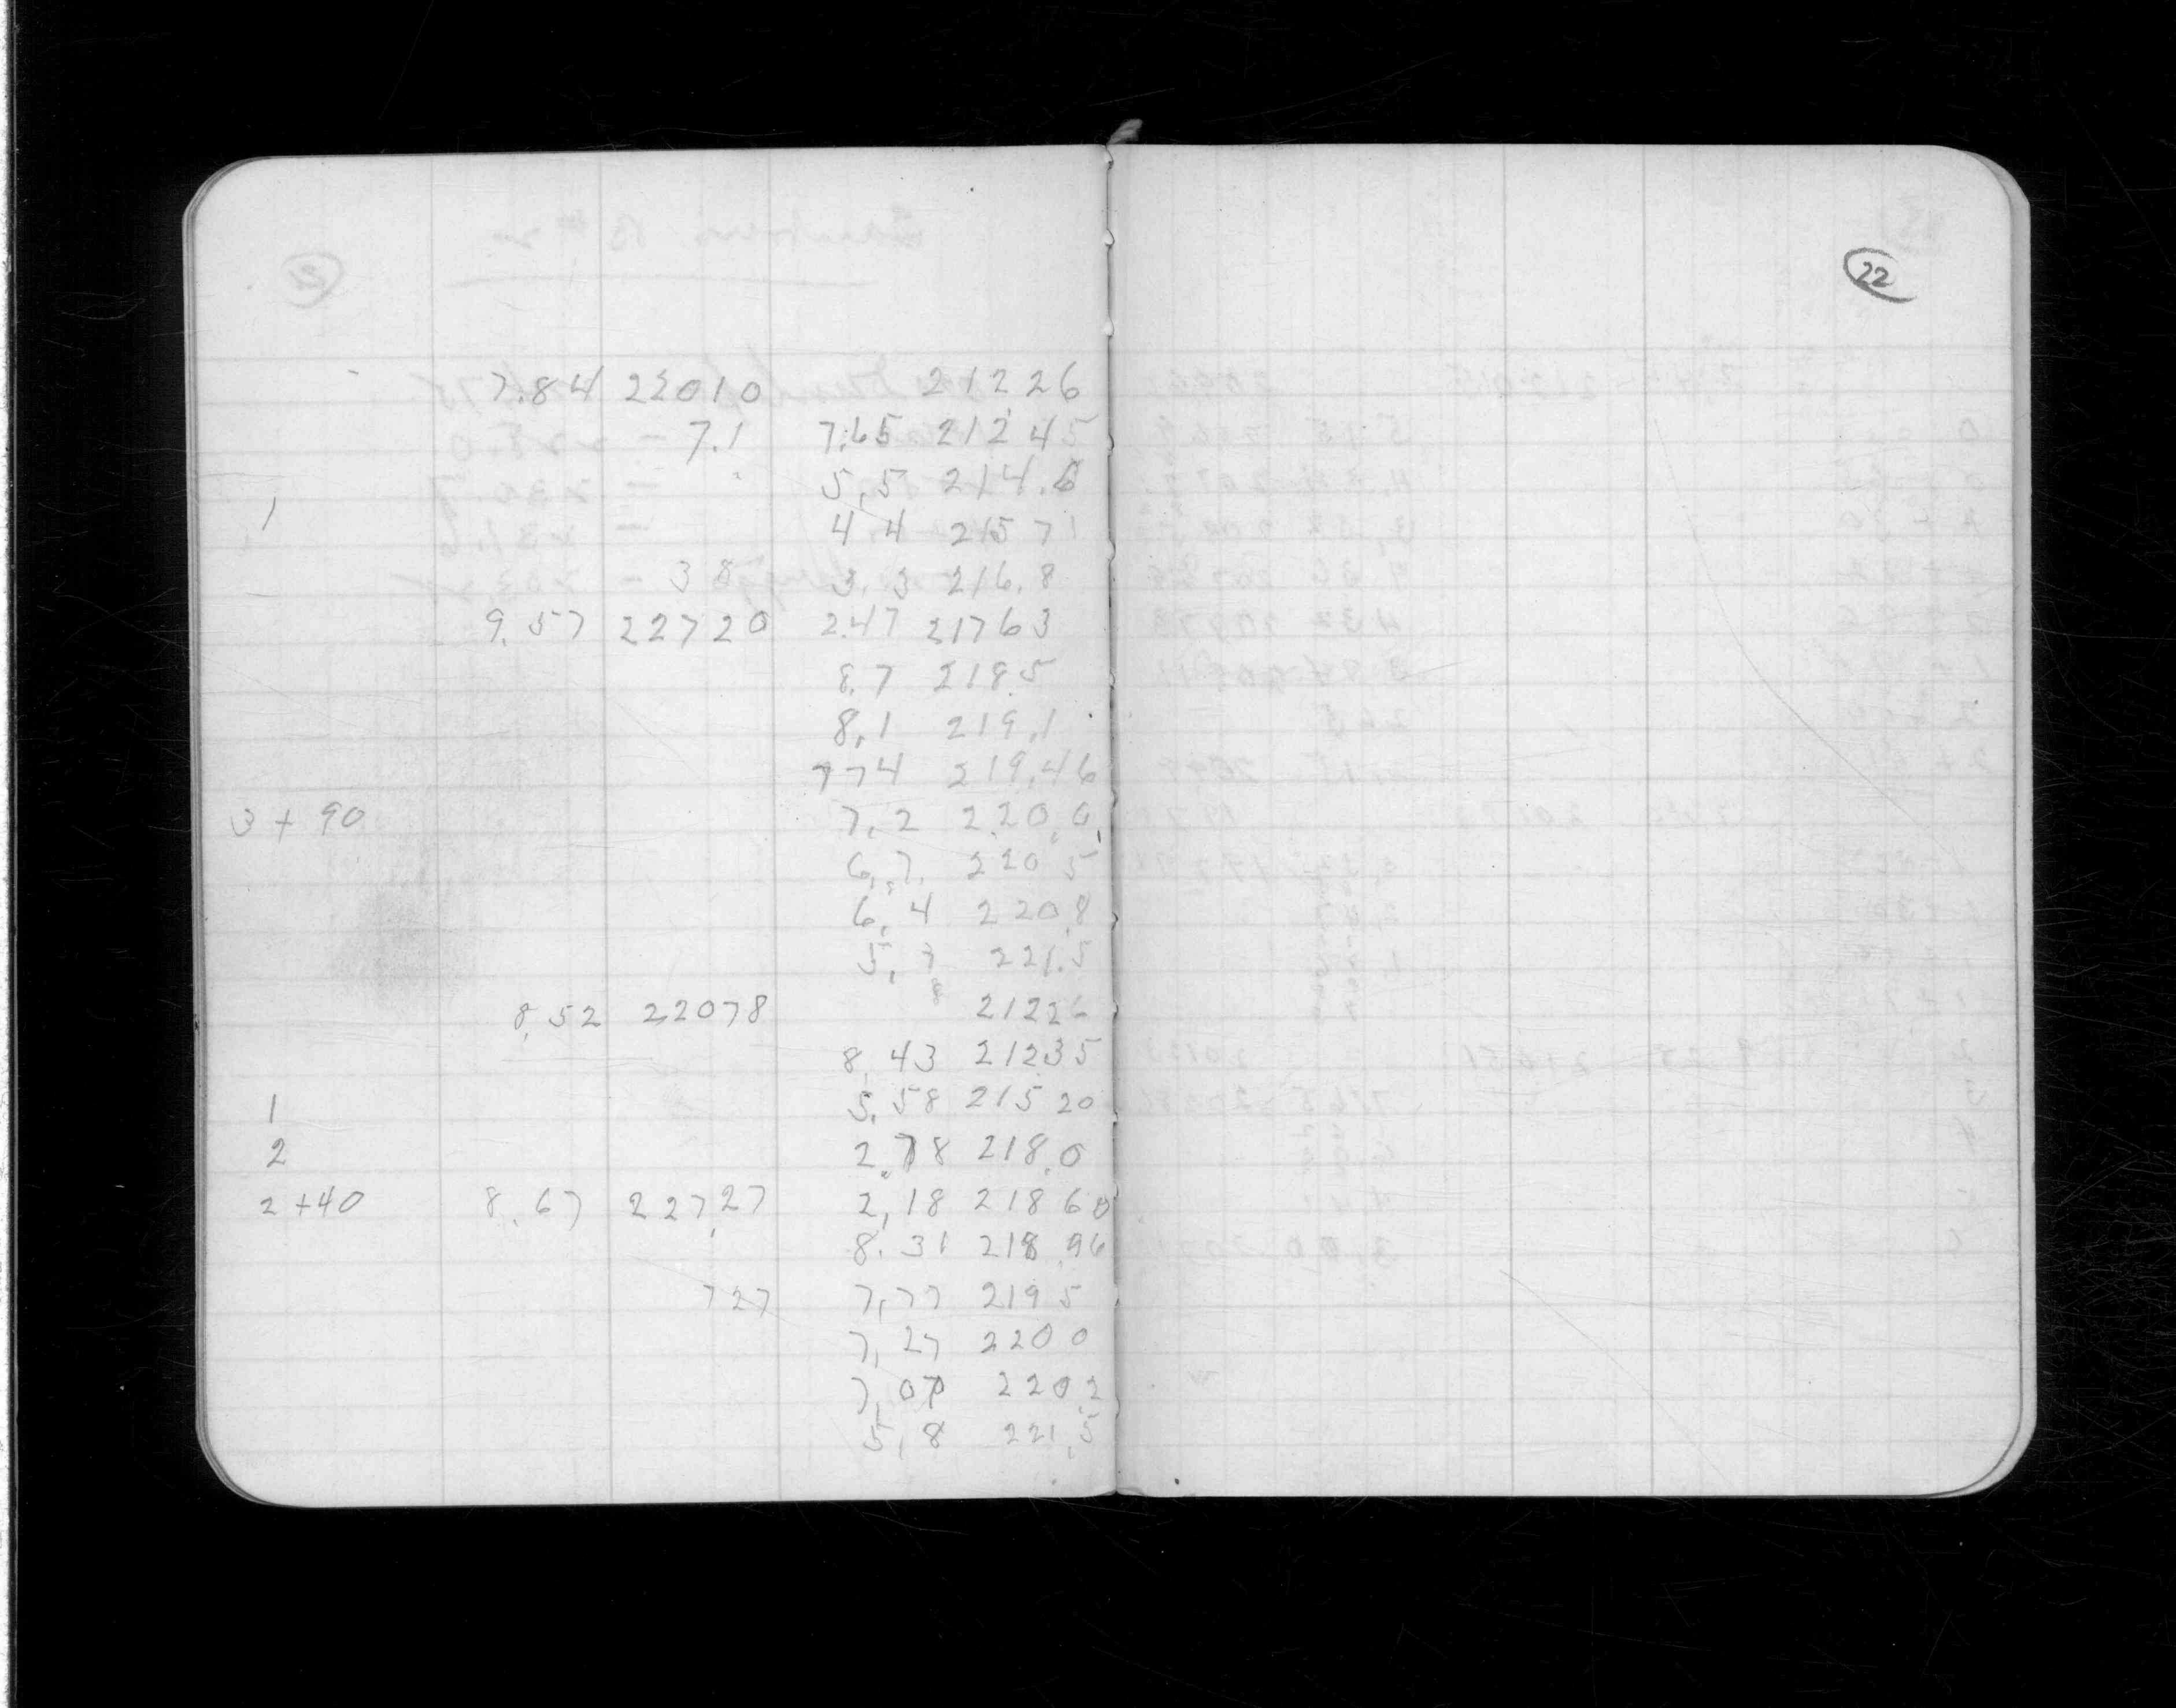 22
7.84 22010 21226
7.1 7.65 21245
5,5 214.6
1 4 4 21571
38 3.3 216.8
9.57 22720 2.47 21763
8.7 218.5
8,1 219,1
774 219.46
3 + 90 7,2 220,0
6,7 220 5
6,4 220,8
5, 7 221.5
8
8.52 22078 21226
8.43 21235
1 5.58 215 20
2 2.78 218.0
2 +40 8.67 227,27 2,18 218 60
8.31 218.96
727 7,77 219 5
7,27 220 0
7,07 220,2
5,8 221,5